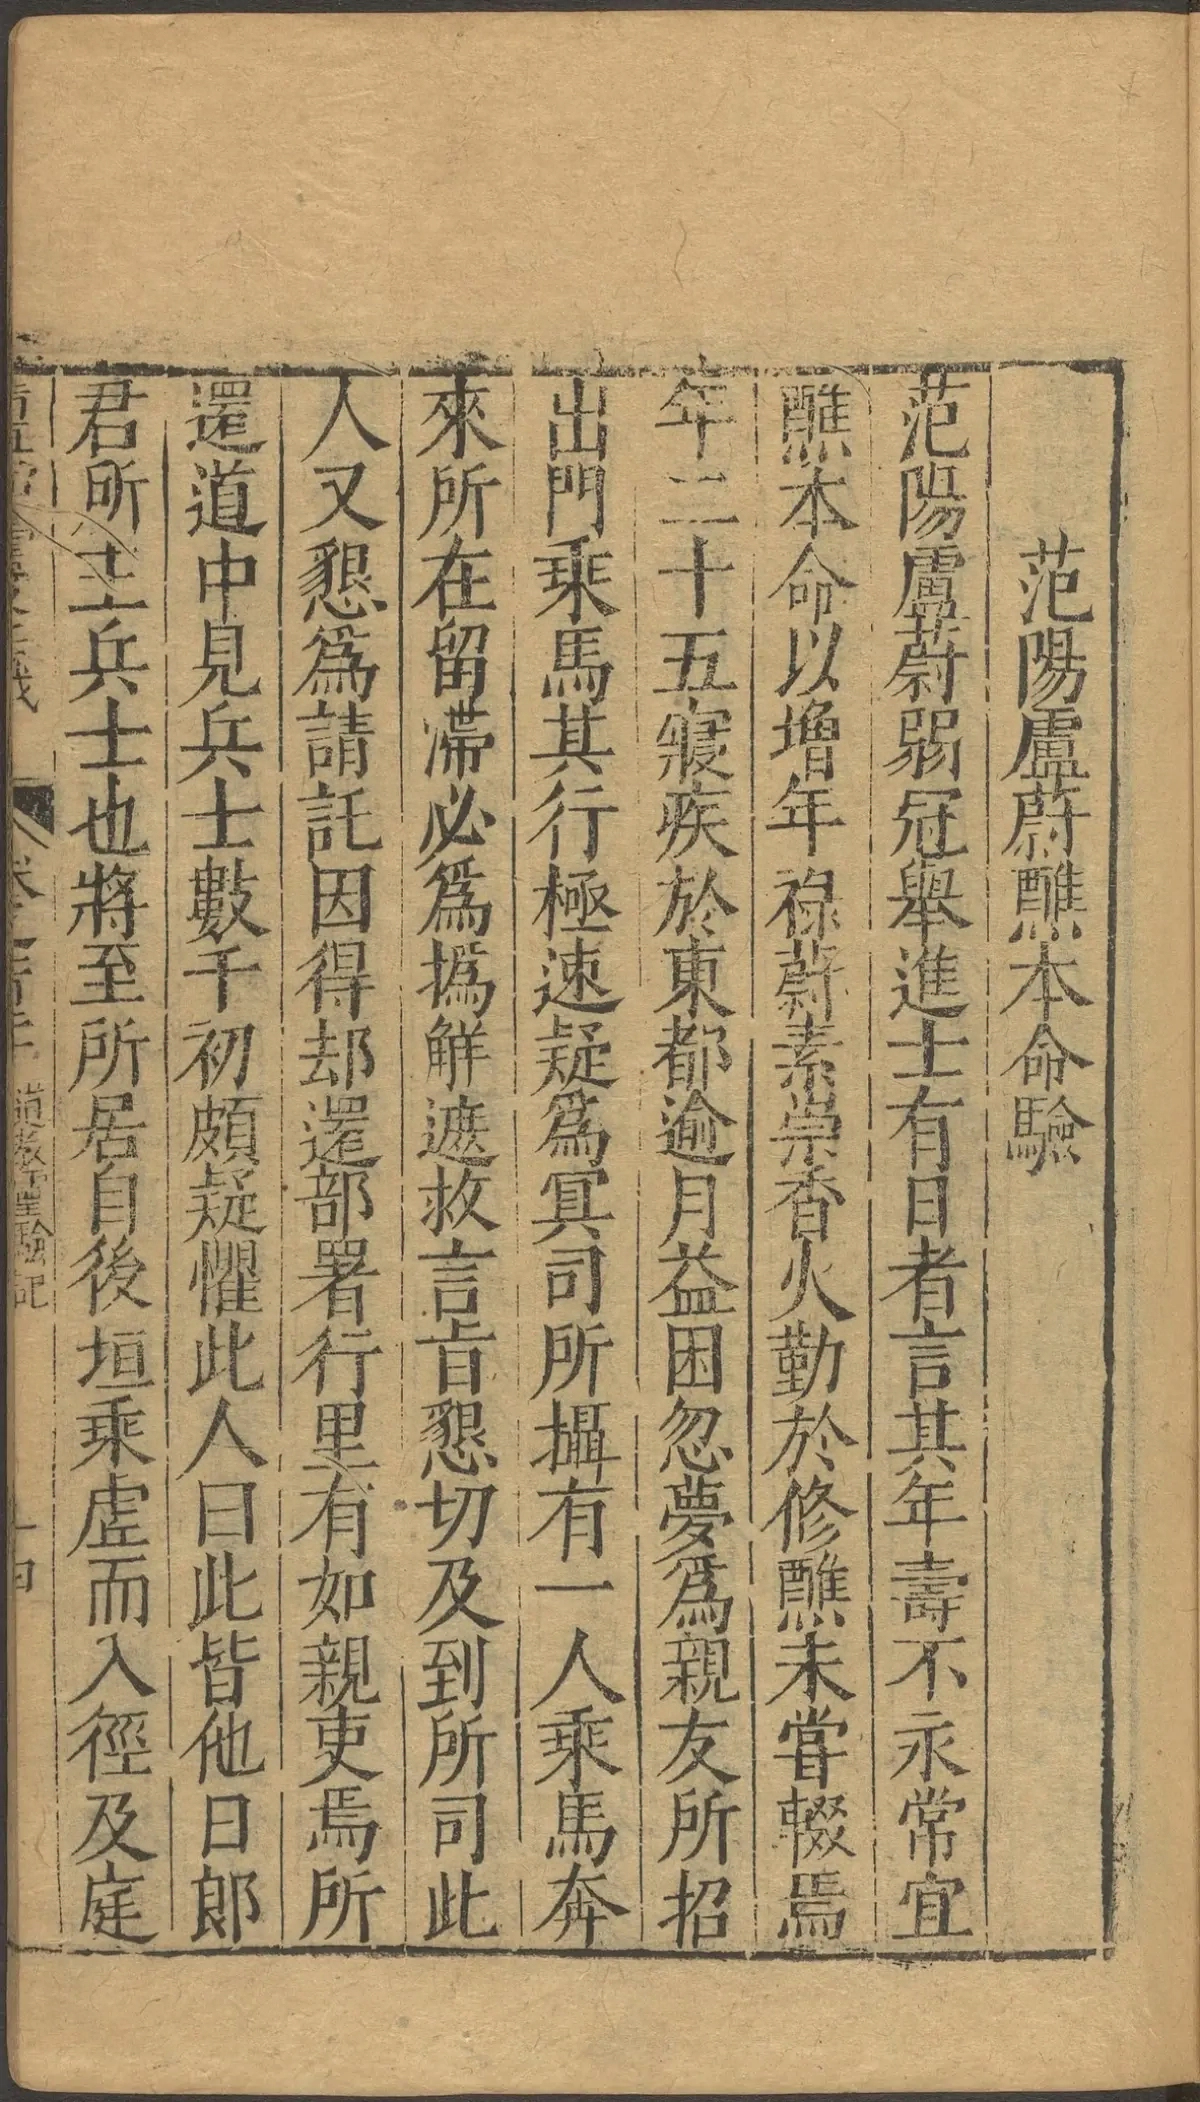 范陽盧蔚醮本命驗
范陽盧蔚弱冠舉進士有日者言其年壽不永常宜
醮本命以增年祿蔚素崇香火勤於修醮未嘗輟焉
年二十五寢疾於東都逾月益困忽夢爲親友所招
出門乘馬其行極速疑爲冥司所攝有一人乘馬奔
來所在留滯必爲撝解遮救言旨懇切及到所司此
人又懇爲請託因得却還部署行里有如親吏焉所
還道中見兵士數千初頗疑懼此人曰此皆他日郎
君所主兵士也將至所居自後垣乘虛而入徑及庭
道教靈驗記